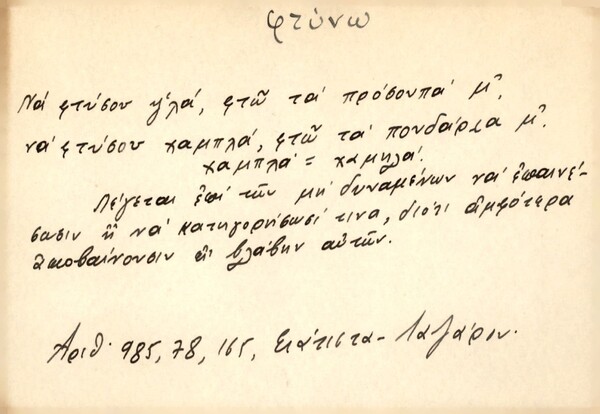 φτύνω
Νά φτύσου ψ'λά, φτῶ τα πρόσουπά μ',
νά φτύσου χαμπλά, φτῶ τα πουδάρια μ'.
χαμπλά = χαμηλά.
Λέγεται ἐπί τῶν μή δυναμένων νά ἐπαινέ-
σωσιν ἤ νά κατηγορήσωσί τινα, διότι ἀμφότερα
ἀποβαίνουσιν εἰς βλάβην αὐτῶν.
Ἀριθ. 985, 78, 165, Σιάτιστα - Λαζάρου.